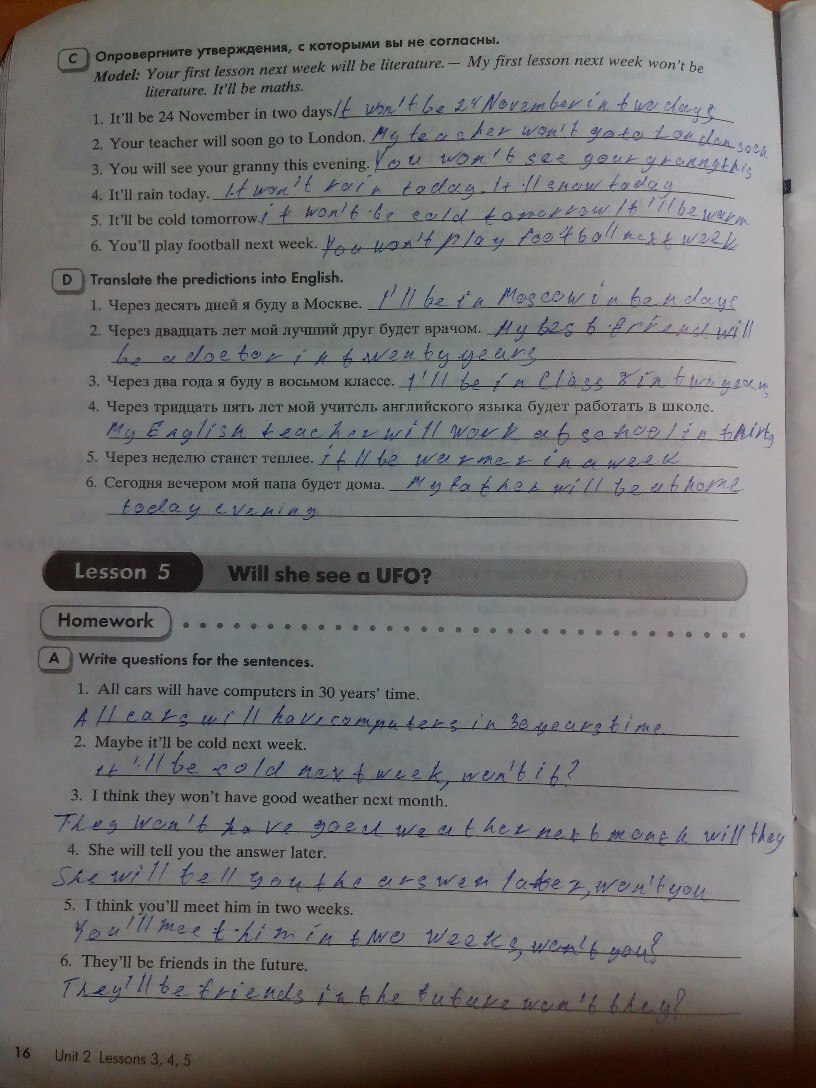 C Опровергните утверждения, с которыми вы не согласны.
Model: Your first lesson next week will be literature. — My first lesson next week won't be
literature. It'll be maths.
1. It'll be 24 November in two days. It won't be 24 November in two days
2. Your teacher will soon go to London. My teacher won't go to London soon
3. You will see your granny this evening. You won't see your granny this
4. It'll rain today. It won't rain today. It'll snow today
5. It'll be cold tomorrow. it won't be cold tomorrow It'll be warm
6. You'll play football next week. You won't play football next week
D Translate the predictions into English.
1. Через десять дней я буду в Москве. I'll be in Moscow in ten days
2. Через двадцать лет мой лучший друг будет врачом. My best friend will
be a doctor in twenty years
3. Через два года я буду в восьмом классе. I'll be in Class 8 in two years
4. Через тридцать пять лет мой учитель английского языка будет работать в школе.
My English teacher will work at school in thirty
5. Через неделю станет теплее. it'll be warmer in a week
6. Сегодня вечером мой папа будет дома. My father will be at home
today evening
Lesson 5 Will she see a UFO?
Homework
A Write questions for the sentences.
1. All cars will have computers in 30 years' time.
All cars will have computers in 30 years time
2. Maybe it'll be cold next week.
it'll be cold next week, won't it?
3. I think they won't have good weather next month.
They won't have good weather next month will they
4. She will tell you the answer later.
She will tell you the answer later, won't you
5. I think you'll meet him in two weeks.
You'll meet him in two weeks, won't you?
6. They'll be friends in the future.
They'll be friends in the future won't they?
16 Unit 2 Lessons 3, 4, 5